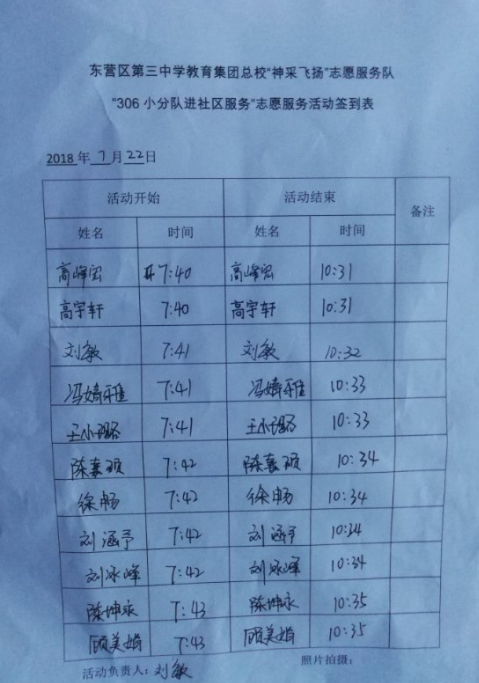 东营区第三中学教育集团总校"神采飞扬"志愿服务队
"306小分队进社区服务"志愿服务活动签到表
2018年7月22日
活动开始 活动结束 备注
姓名 时间 姓名 时间
高峰宏 7:40 高峰宏 10:31
高宇轩 7:40 高宇轩 10:31
刘敏 7:41 刘敏 10:32
冯婧雅 7:41 冯婧雅 10:33
王小璐 7:41 王小璐 10:33
陈嘉硕 7:42 陈嘉硕 10:34
徐畅 7:42 徐畅 10:34
刘涵予 7:42 刘涵予 10:34
刘冰峰 7:42 刘冰峰 10:34
陈坤永 7:43 陈坤永 10:35
顾美娟 7:43 顾美娟 10:35
活动负责人:刘敏 照片拍摄: